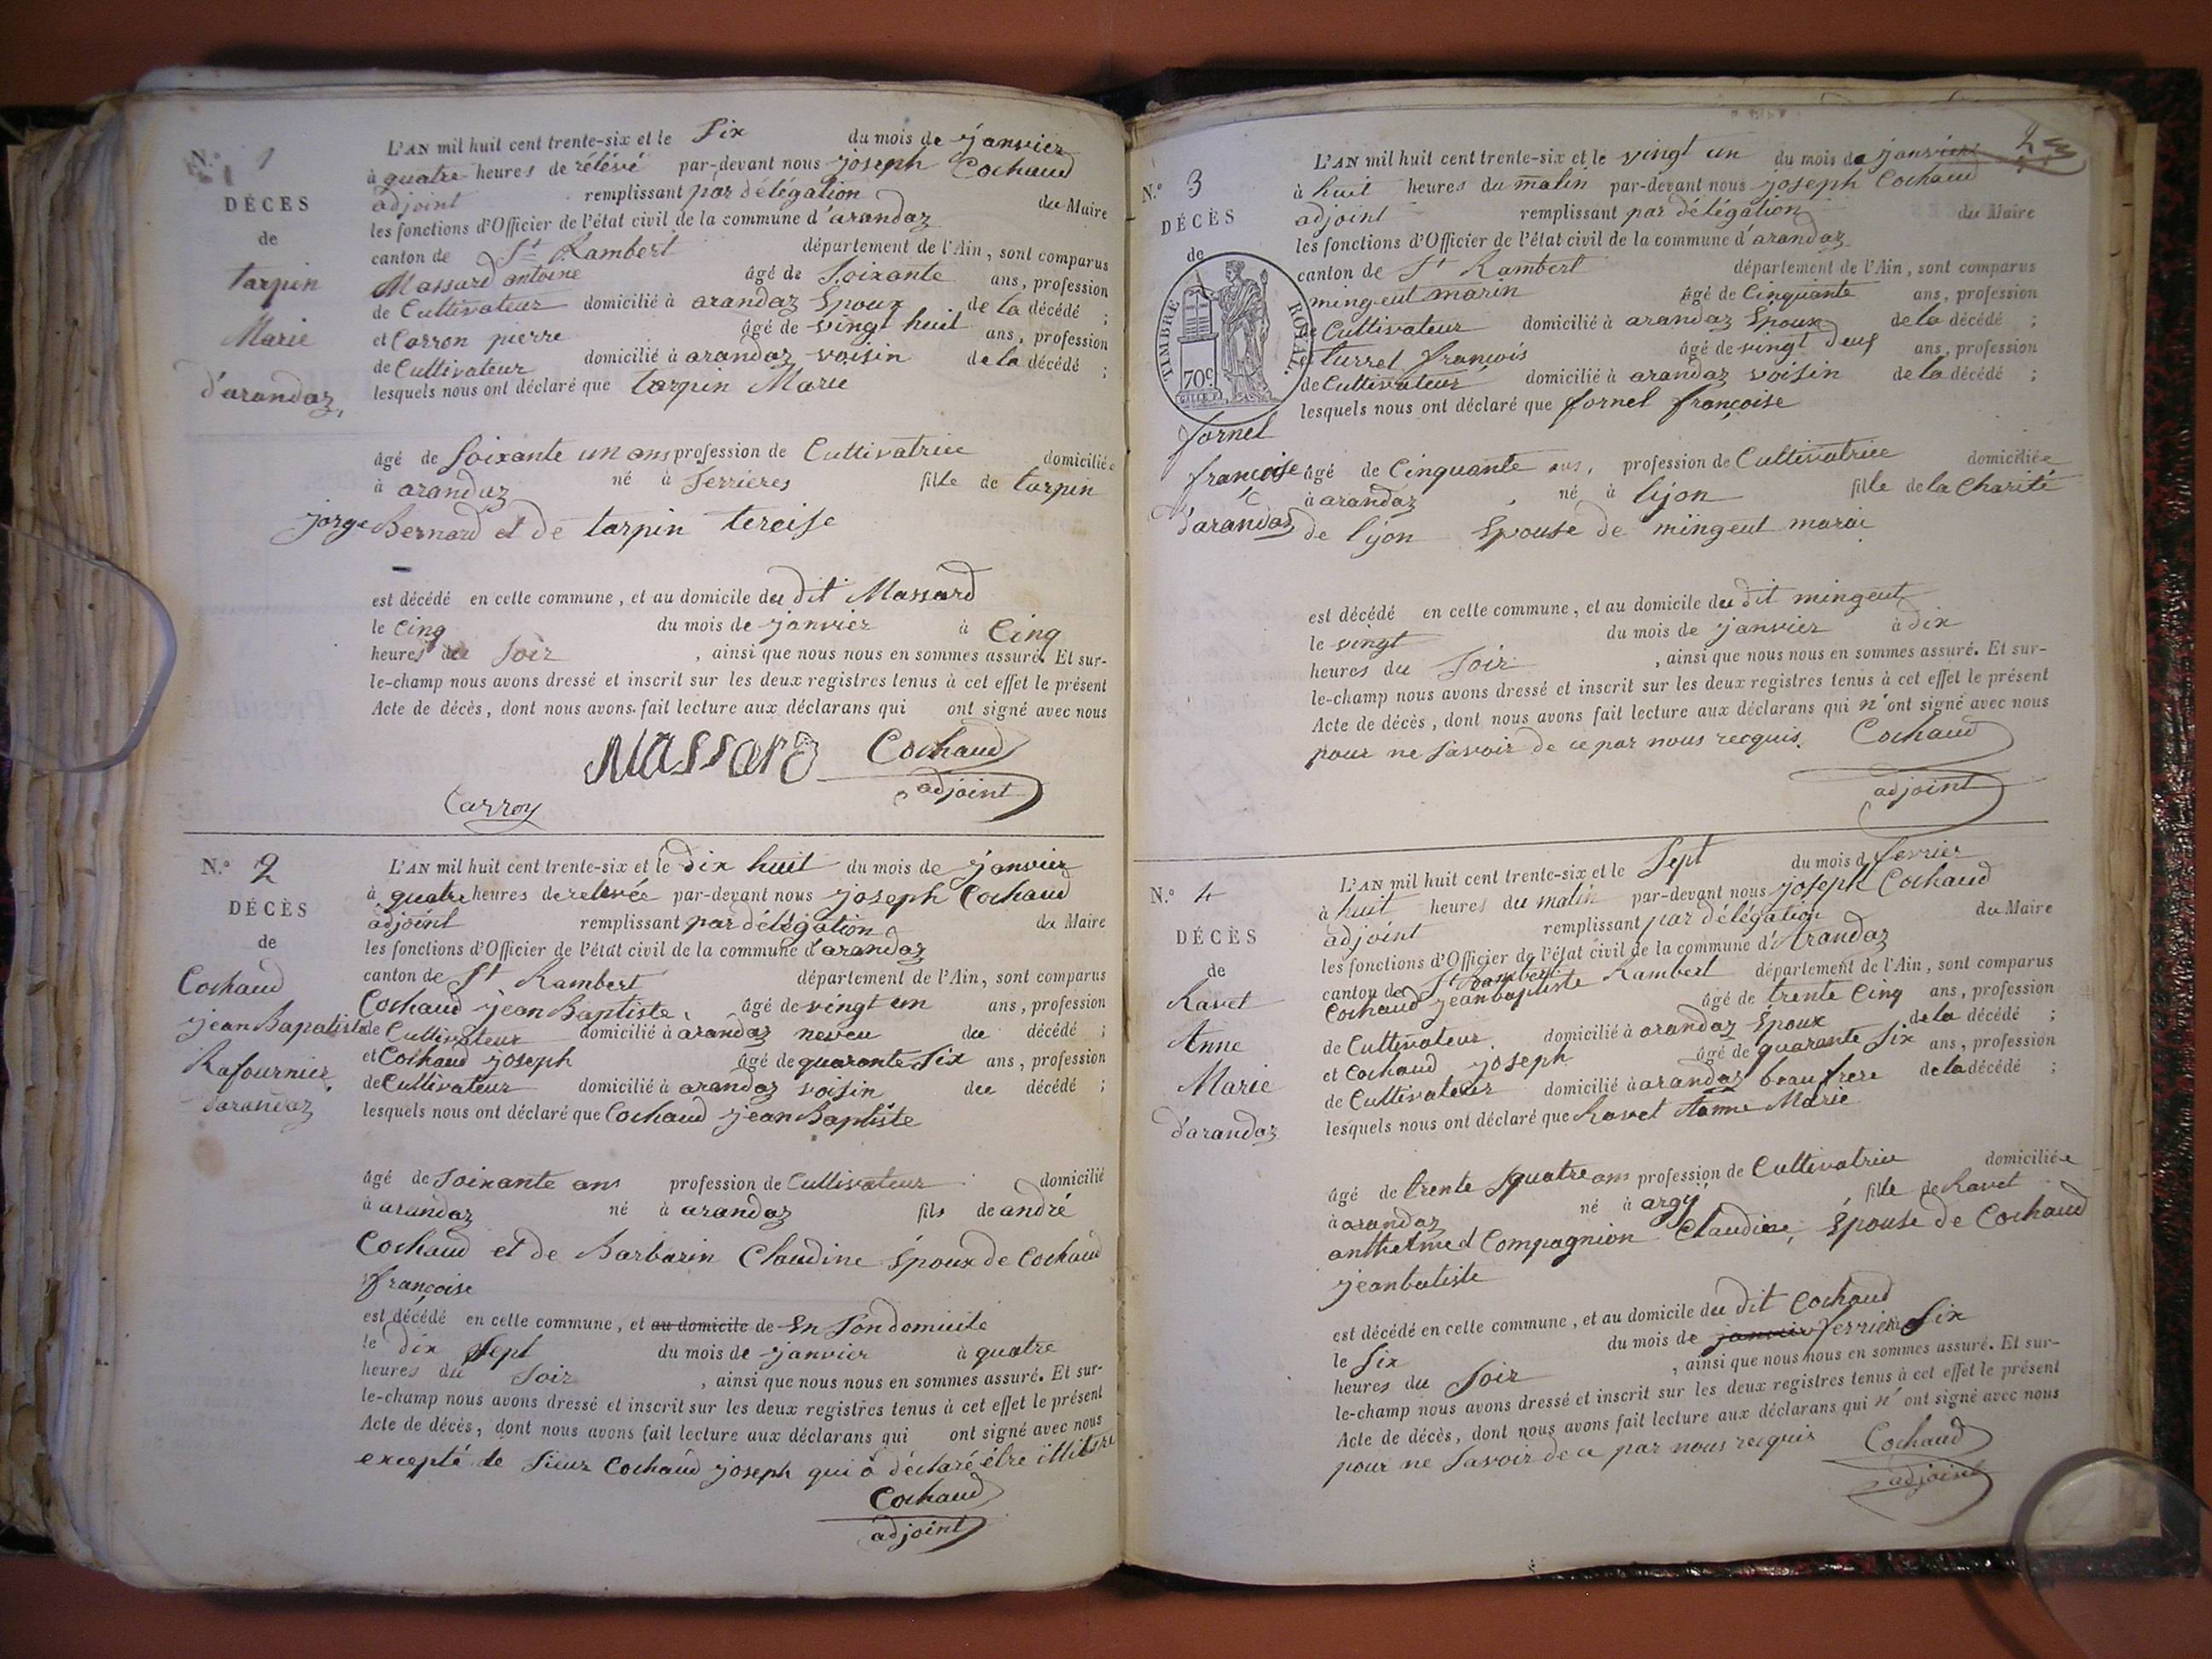 N.º 1
DÉCES
de
tarpin
Marie
d'arandaz,
L'AN mil huit cent trente-six et le Six du mois de janvier
à quatre heures de rélévé par-devant nous joseph Cochaud
adjoint remplissant par délégation du Maire
les fonctions d'Officier de l'état civil de la commune d'arandaz
canton de St Rambert département de l'Ain, sont comparus
Massard antoine âgé de Soixante ans, profession
de Cultivateur domicilié à arandaz Epoux de la décédé ;
et Carron pierre âgé de vingt huit ans, profession
de Cultivateur domicilié à arandaz voisin de la décédé ;
lesquels nous ont déclaré que tarpin Marie
âgé de Soixante un ans profession de Cultivatrice domiciliée
à arandaz né à Serrieres fille de tarpin
jorge Bernard et de tarpin tereise
est décédé en cette commune, et au domicile du dit Massard
le Cinq du mois de janvier à Cinq
heures du Soir , ainsi que nous nous en sommes assuré. Et sur-
le-champ nous avons dressé et inscrit sur les deux registres tenus à cet effet le présent
Acte de décès, dont nous avons fait lecture aux déclarans qui ont signé avec nous
Massard Cochaud
adjoint
Carroy
N.º 2
DÉCÈS
de
Cochaud
jean Bapatiste
Rafournier
d'arandaz
L'AN mil huit cent trente-six et le dix huit du mois de janvier
à quatre heures de relevée par-devant nous joseph Cochaud
adjoint remplissant par délégation du Maire
les fonctions d'Officier de l'état civil de la commune d'arandaz
canton de St Rambert département de l'Ain, sont comparus
Cochaud jean Baptiste, âgé de vingt un ans, profession
de Cultivateur domicilié à arandaz neveu du décédé ;
et Cochaud joseph âgé de quarante Six ans, profession
de Cultivateur domicilié à arandaz voisin du décédé ;
lesquels nous ont déclaré que Cochaud jean Baptiste
âgé de Soixante ans profession de Cultivateur domicilié
à arandaz né à arandaz fils de andré
Cochaud et de Barbarin Claudine Epoux de Cochaud
françoise
est décédé en cette commune, et au domicile de En Son domicile
le dix Sept du mois de janvier à quatre
heures du Soir , ainsi que nous nous en sommes assuré. Et sur-
le-champ nous avons dressé et inscrit sur les deux registres tenus à cet effet le présent
Acte de décès, dont nous avons fait lecture aux déclarans qui ont signé avec nous
excepté le Sieur Cochaud joseph qui a déclaré être illitéré
Cochaud
adjoint
2
N.º 3
DÉCÈS
de
TIMBRE ROYAL.
70c
fornel
françoise
d'arandaz
L'AN mil huit cent trente-six et le vingt un du mois de janvier
à huit heures du matin par-devant nous joseph Cochaud
adjoint remplissant par délégation du Maire
les fonctions d'Officier de l'état civil de la commune d'arandaz
canton de St Rambert département de l'Ain, sont comparus
mingeut marin âgé de Cinquante ans, profession
de Cultivateur domicilié à arandaz Epoux de la décédé ;
et turrel françois âgé de vingt deuf ans, profession
de Cultivateur domicilié à arandaz voisin de la décédé ;
lesquels nous ont déclaré que fornel françoise
âgé de Cinquante ans, profession de Cultivatrice domiciliée
à arandaz, né à lijon fille de la Charité
de lijon Epouse de mingeut marai
est décédé en cette commune, et au domicile du dit mingeut
le vingt du mois de janvier à dix
heures du Soir , ainsi que nous nous en sommes assuré. Et sur-
le-champ nous avons dressé et inscrit sur les deux registres tenus à cet effet le présent
Acte de décès, dont nous avons fait lecture aux déclarans qui n'ont signé avec nous
pour ne Savoir de ce par nous recquis. Cochaud
adjoint
N.º 4
DÉCÈS
de
Ravet
Anne
Marie
d'arandaz
L'AN mil huit cent trente-six et le Sept du mois d fevrier
à huit heures du matin par-devant nous joseph Cochaud
adjoint remplissant par délégation du Maire
les fonctions d'Officier de l'état civil de la commune d'Arandaz
canton de St Rambert Rambert département de l'Ain, sont comparus
Cochaud jeanbaptiste âgé de trente Cinq ans, profession
de Cultivateur domicilié à arandaz Epoux de la décédé ;
et Cochaud joseph âgé de quarante Six ans, profession
de Cultivateur domicilié à arandaz beau frere de la décédé ;
lesquels nous ont déclaré que Ravet Anne Marie
âgé de trente quatre ans profession de Cultivatrice domiciliée
à arandaz né à argy fille de Ravet
anthelme et Compagnion Claudine, Epouse de Cochaud
jeanbatiste
est décédé en cette commune, et au domicile du dit Cochaud
le Six du mois de janvier fevrier à Six
heures du Soir , ainsi que nous nous en sommes assuré. Et sur-
le-champ nous avons dressé et inscrit sur les deux registres tenus à cet effet le présent
Acte de décès, dont nous avons fait lecture aux déclarans qui n'ont signé avec nous
pour ne Savoir de ce par nous recquis Cochaud
adjoint